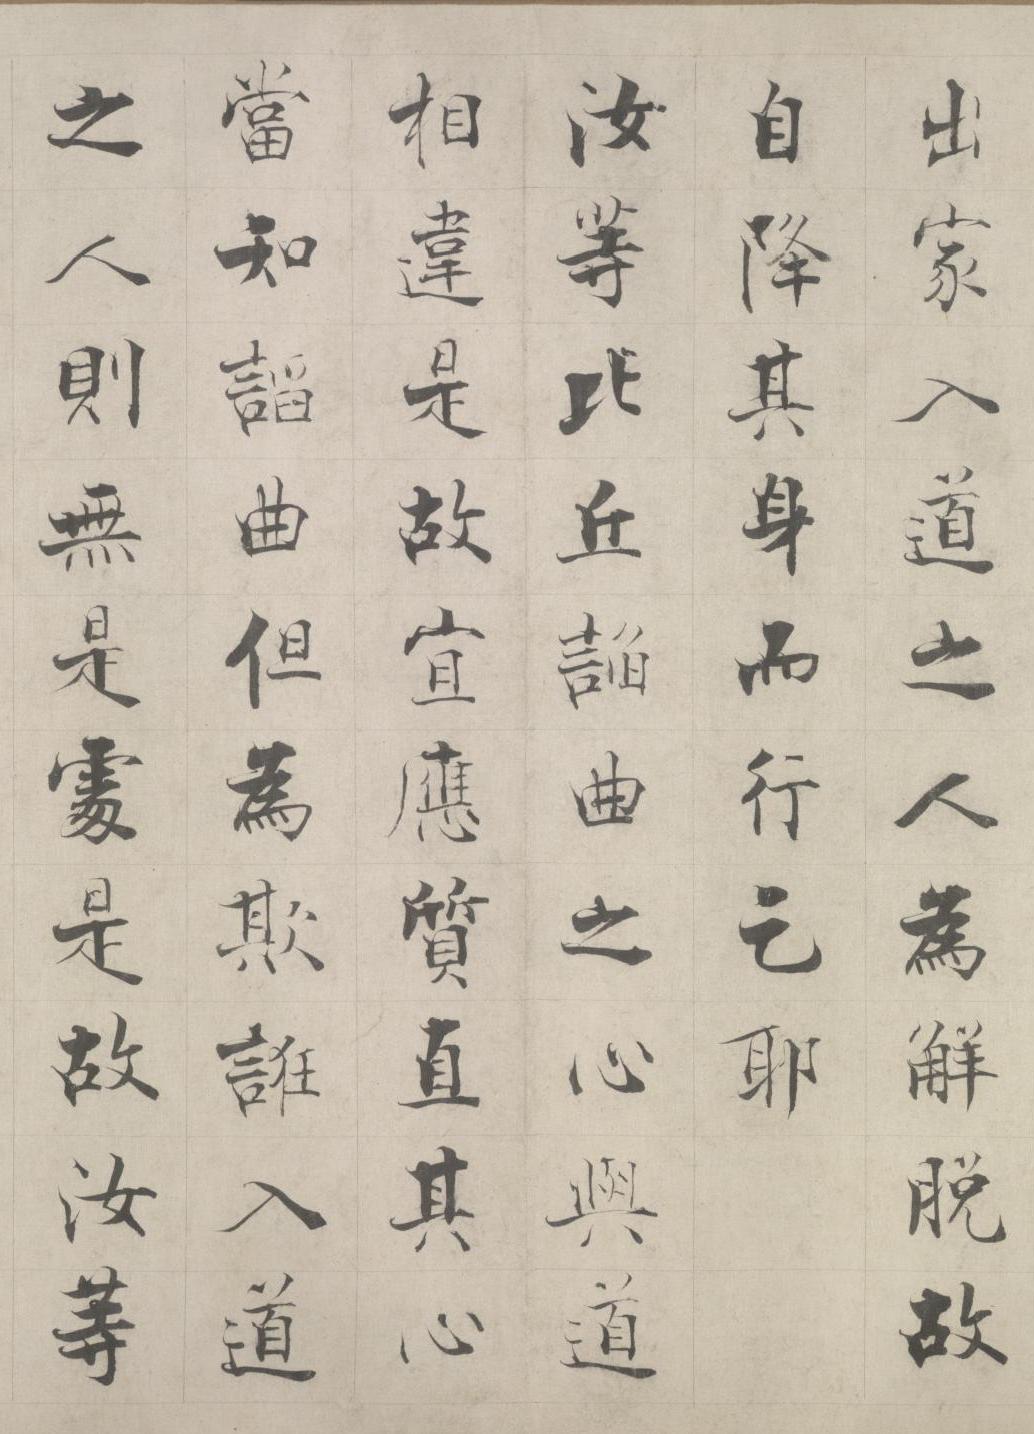 出家入道之人為解脫故
自降其身而行乞耶
汝等比丘諂曲之心與道
相違是故宜應質直其心
當知諂曲但為欺誑入道
之人則無是處是故汝等